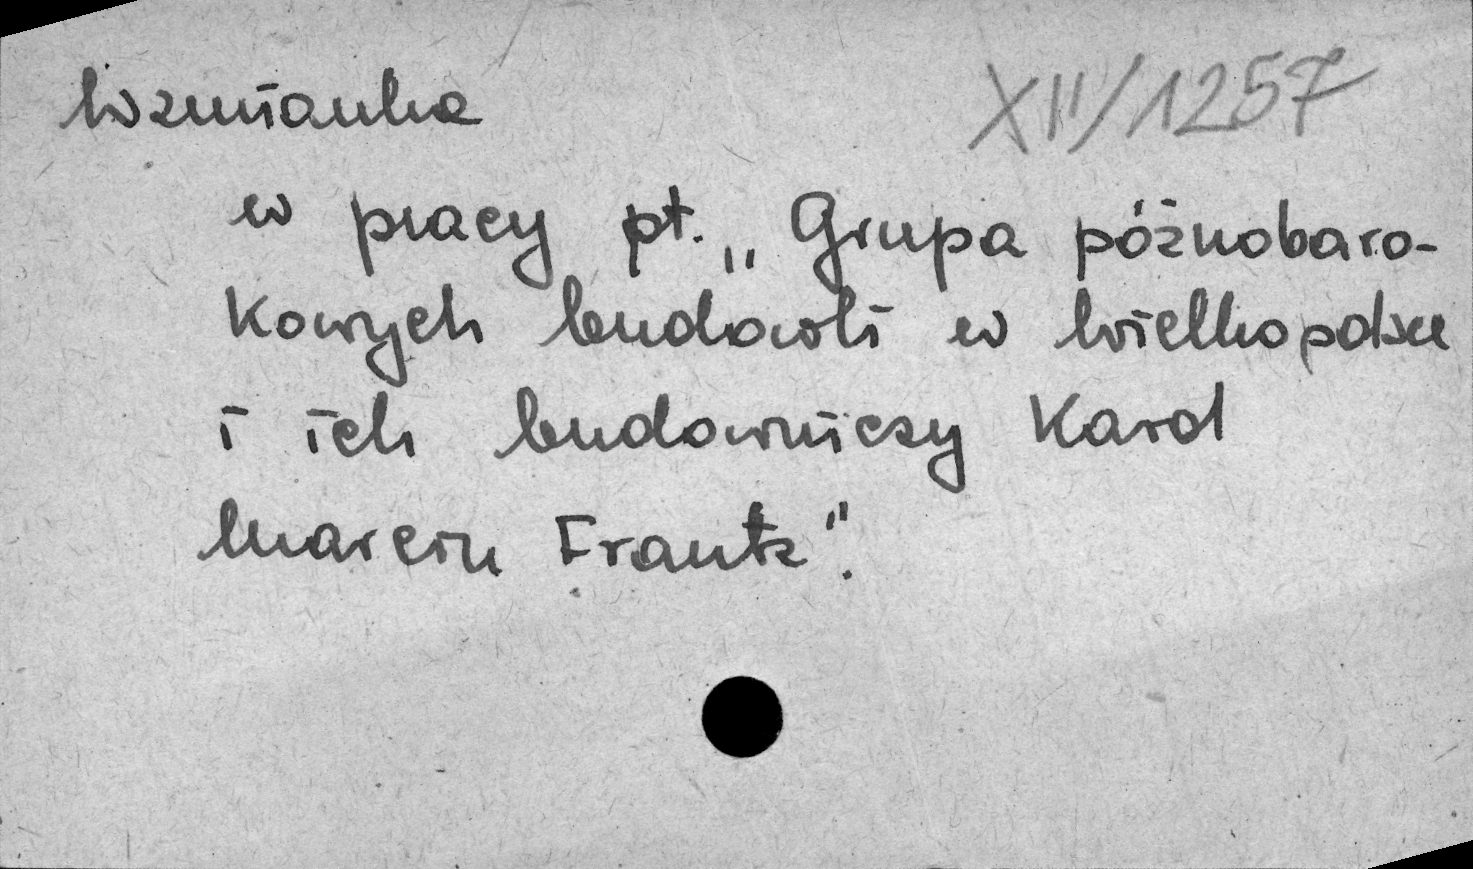 Wzmianka XII/1257
w pracy pt. „Grupa późnobaro-
kowych budowli w Wielkopolsce
i ich budowniczy Karol
Marcin Frantz".